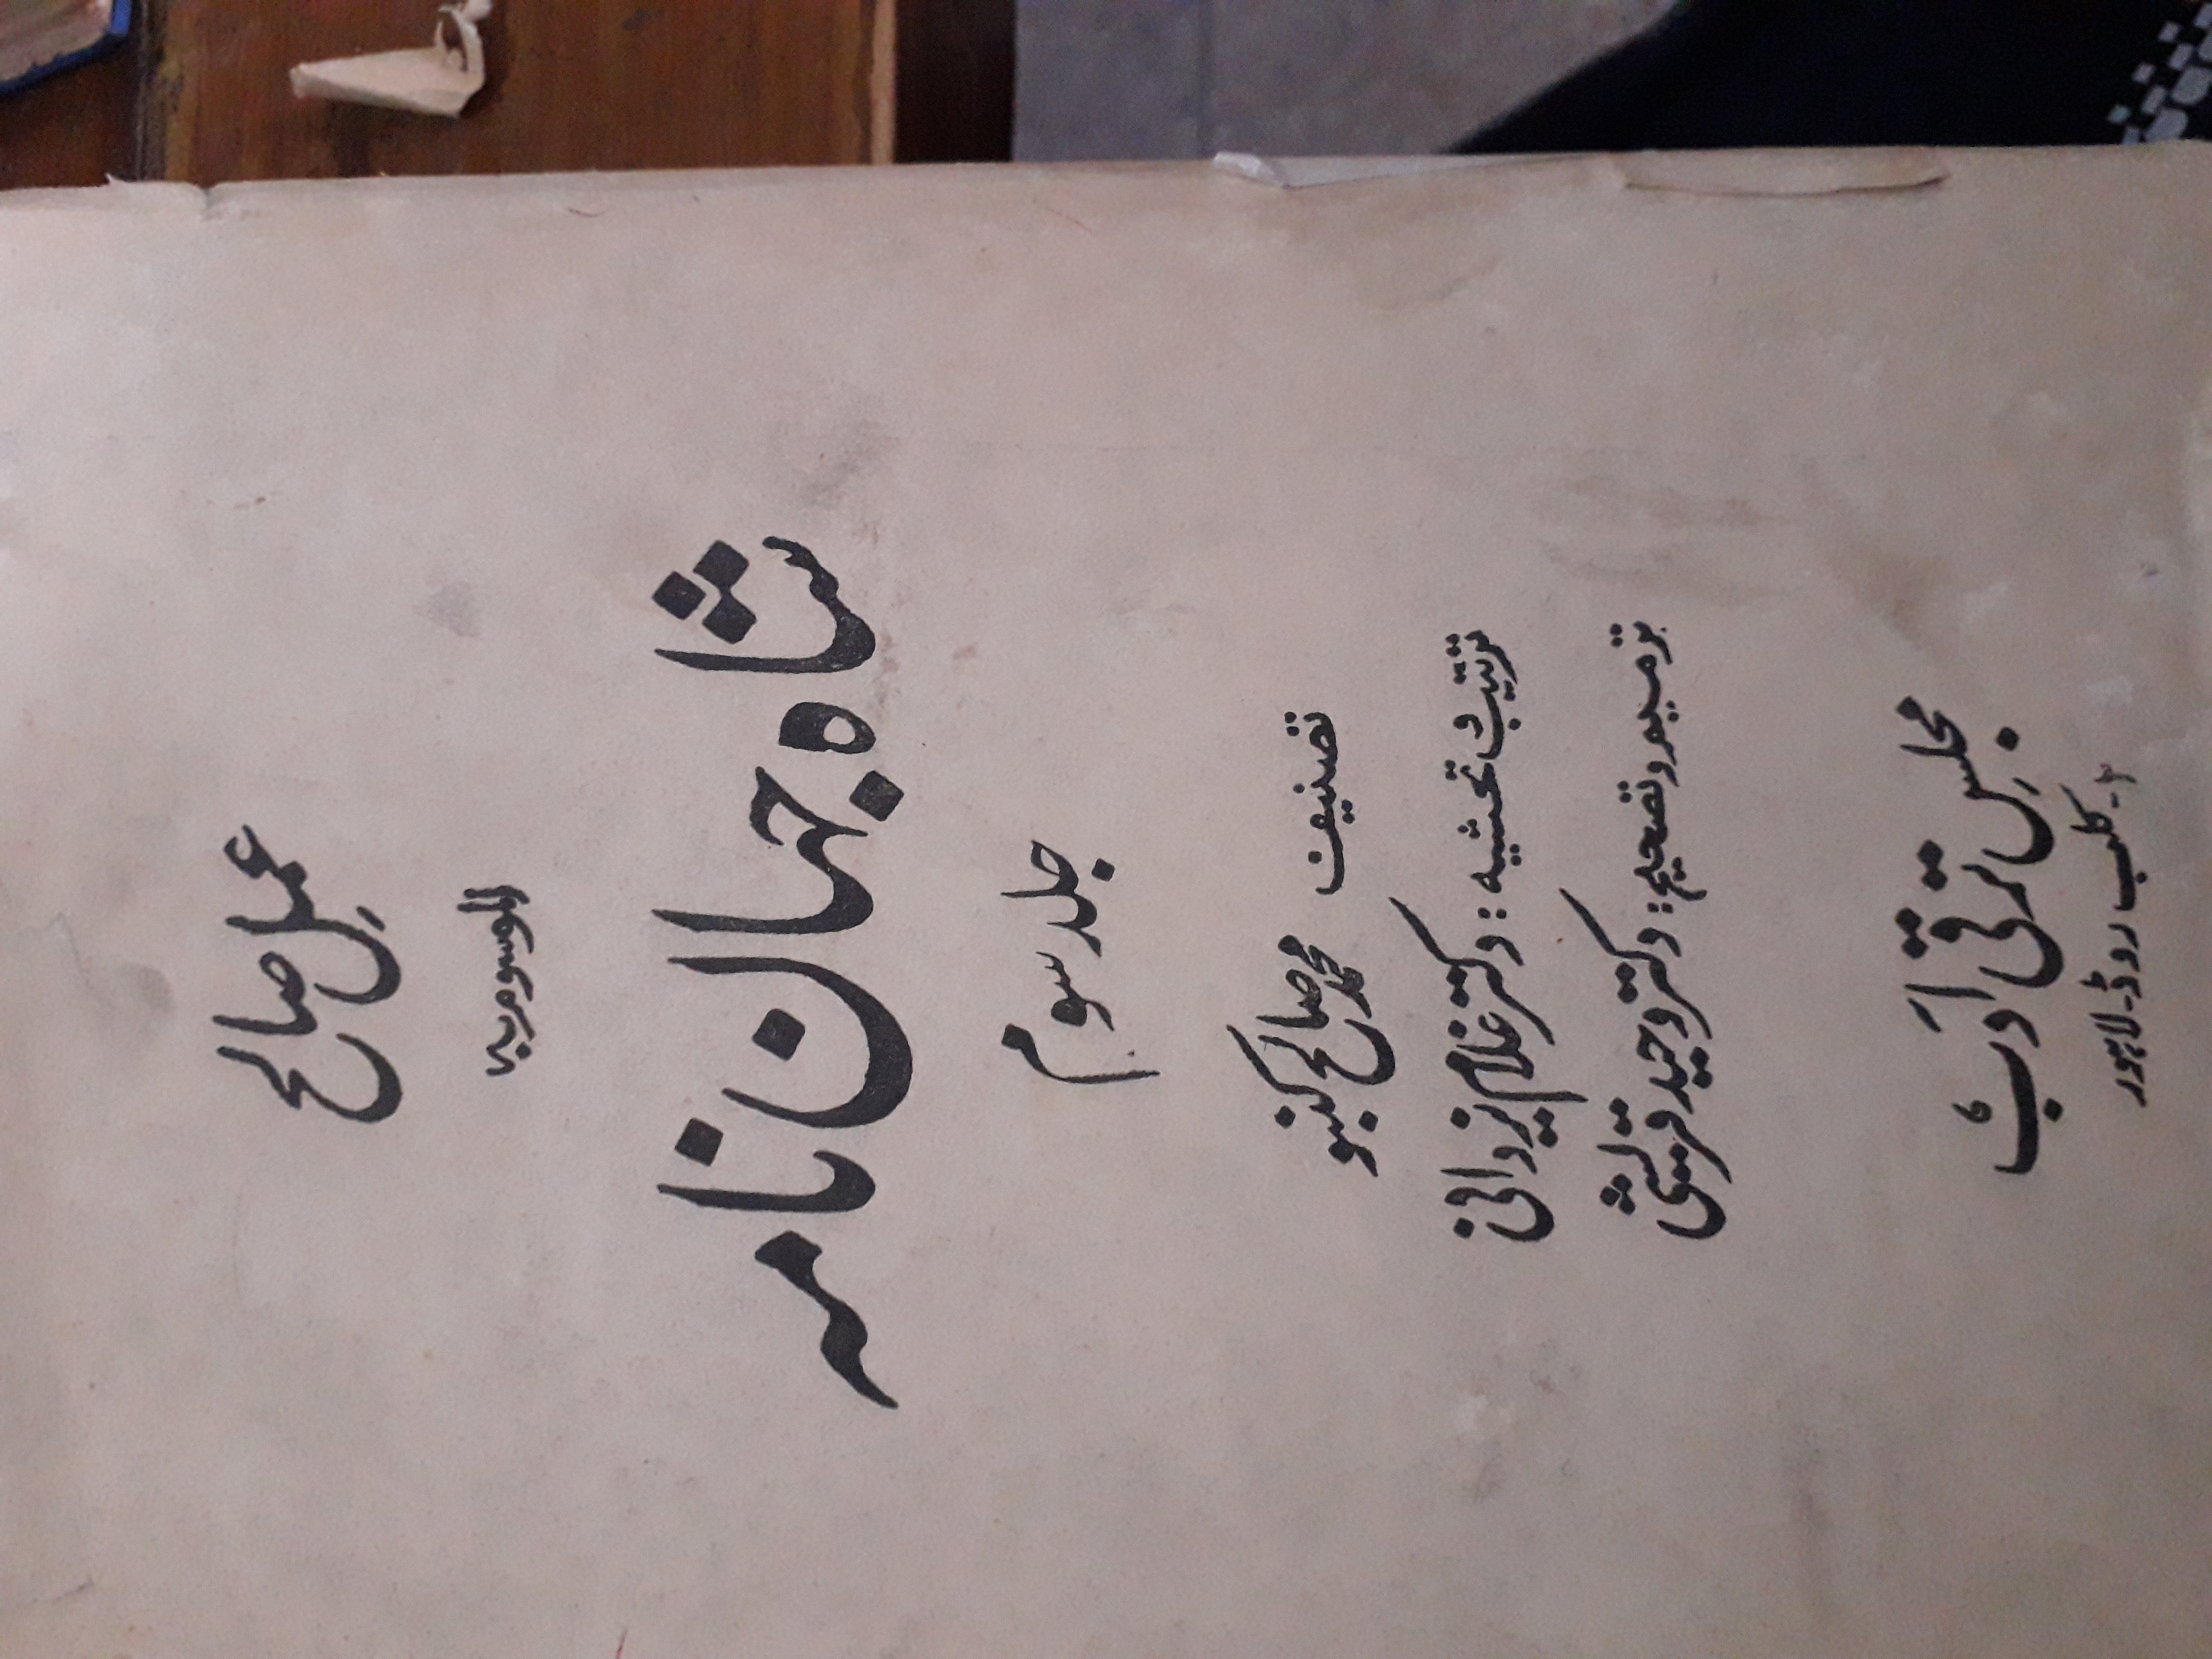 عملِ صالح
الموسوم بہ
شاہ جہاں نامہ
جلد سوم
تصنیف
محمد صالح کنبو
ترتیب و تحشیہ : دکتر غلام یزدانی
ترمیم و تصحیح : دکتر وحید قریشی
مجلسِ ترقی ادب
۲ - کلب روڈ - لاہور